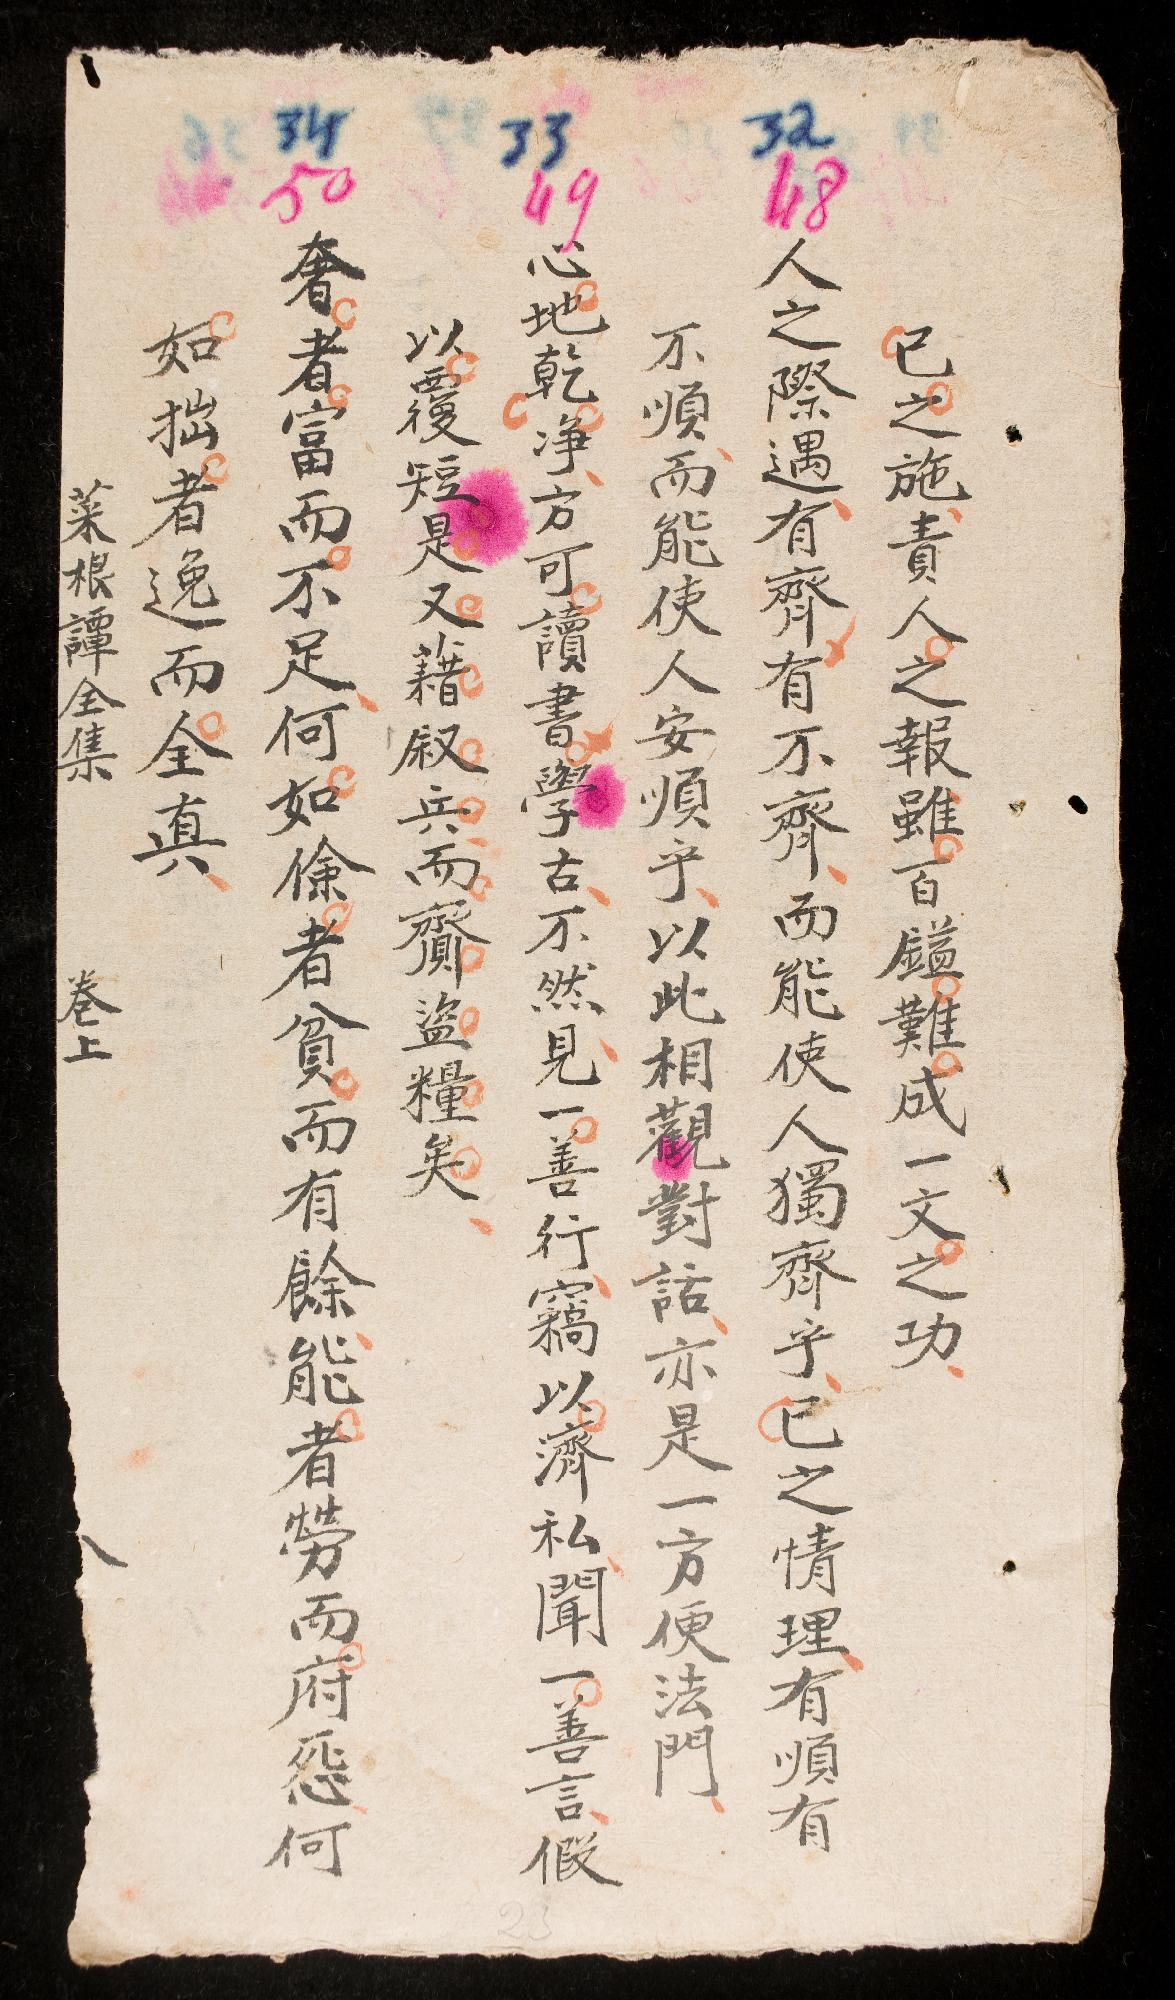 32
48
33
49
34
50
己之施責人之報雖百鎰難成一文之功
人之際遇有齊有不齊而能使人獨齊乎己之情理有順有
不順而能使人安順乎以此相觀對話亦是一方便法門
心地乾净方可讀書學古不然見一善行竊以濟私聞一善言假
以覆短是又藉㓂兵而齎盜糧矣
奢者富而不足何如儉者貧而有餘能者勞而府怨何
如拙者逸而全真
菜根譚全集 卷上 八
23